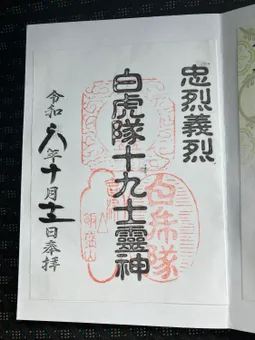 忠烈義烈
白虎隊十九士靈神
令和六年十月十二日奉拝
白虎隊
飯盛山